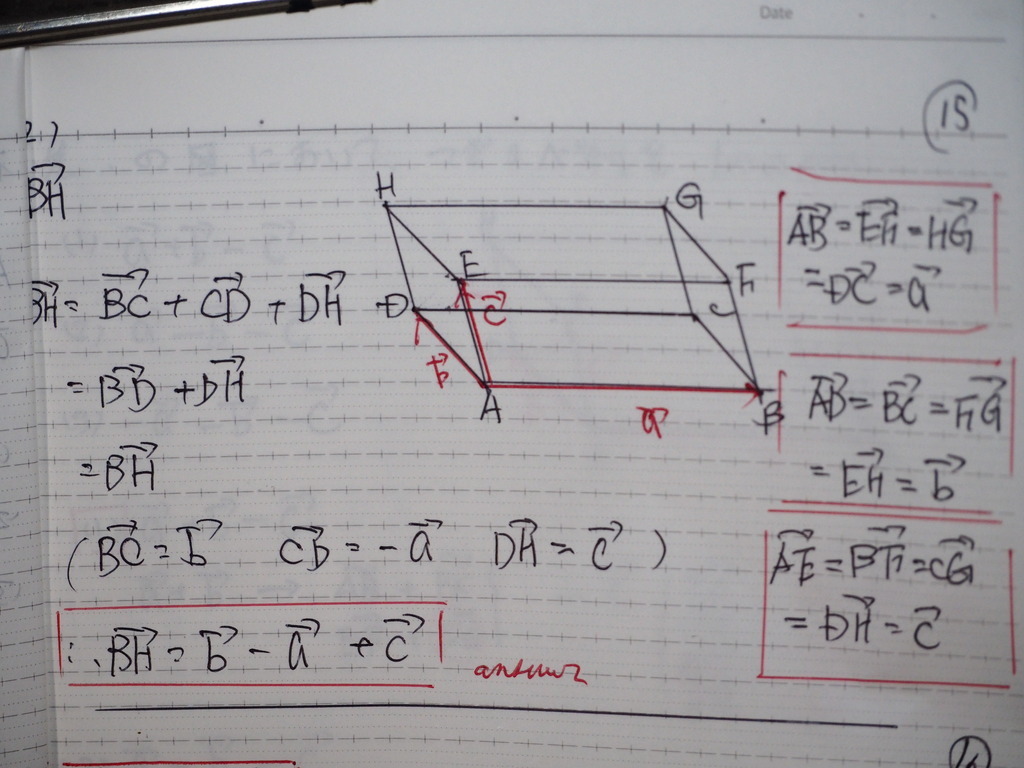 Date
15
2.)
BH→
BH→ = BC→ + CD→ + DH→
= BD→ + DH→
= BH→
( BC→ = b→ CD→ = -a→ DH→ = c→ )
∴ BH→ = b→ - a→ + c→
answer
H
G
E
F
D
C
c→
b→
A
B
a→
AB→ = EF→ = HG→
= DC→ = a→
AD→ = BC→ = FG→
= EH→ = b→
AE→ = BF→ = CG→
= DH→ = c→